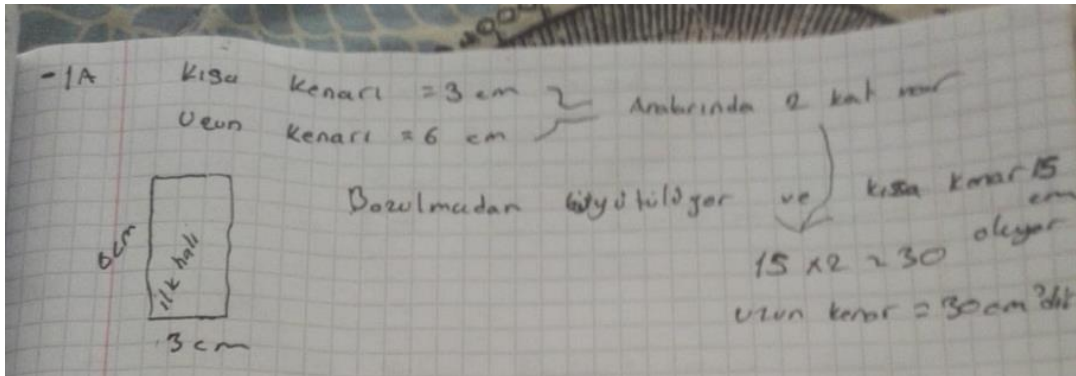 -1A Kısa kenarı = 3 cm
Uzun kenarı = 6 cm
Aralarında 2 kat var
Bozulmadan büyütülüyor ve kısa kenar 15 cm oluyor
15 x2 = 30
uzun kenar = 30 cm'dir
6cm
ilk hali
3 cm